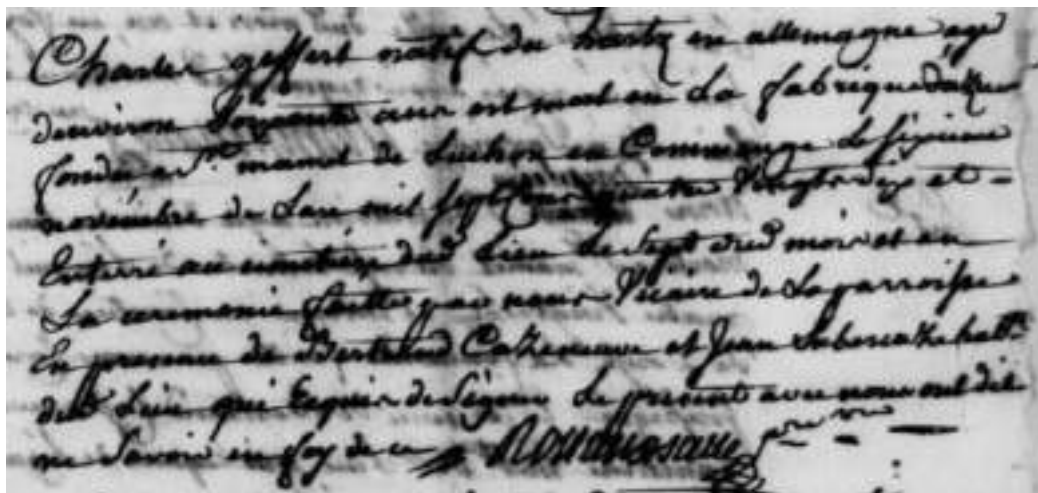 Charles geffert natif du hartz en allemagne agé
d'environ Soixante ans est mort en La fabrique d'azur
fondée a St. mamet de Luchon en Comminge Le sixieme
novémbre de L'an mil sept cens quatre Vingts dix et -
Enterré au cimetiere dud. Lieu Le Sept dud. mois et an
La ceremonie faitte par nous Vicaire de La parroisse
En presence de Bertrand Cazeneuve et Jean habtt.
dud. Lieu qui Requis de Signer Le present avec nous ont dit
ne Savoir en foy de ce